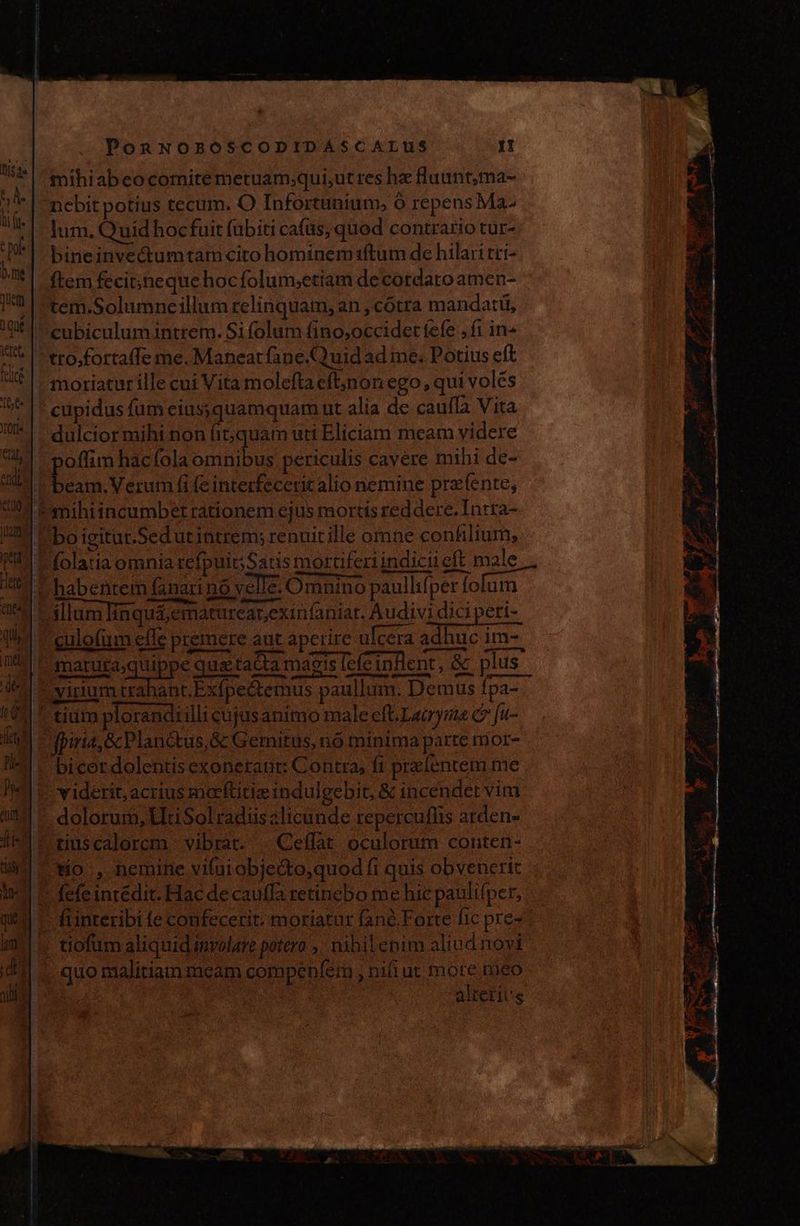 PORNOBOSCODIDASCALUS 11
mihi ab eo comite metuam, qui, ut res hæ fluunt, ma-
nebit potius tecum. O Infortunium, ô repens Ma-
lum. Quid hoc fuit ſubiti caſus, quod contrario tur-
bine invectum tam cito hominem iſtum de hilari tri-
ſtem fecit; neque hoc ſolum, etiam de cordato amen-
tem. Solumne illum relinquam, an, cōtra mandatū,
cubiculum intrem. Si ſolum ſino, occidet ſeſe, ſi in-
tro, fortaſſe me. Maneat ſane. Quid ad me. Potius eſt
moriatur ille cui Vita moleſta eſt, non ego, qui volēs
cupidus ſum eius; quamquam ut alia de cauſſa Vita
dulcior mihi non ſit, quam uti Eliciam meam videre
poſſim hâc ſola omnibus periculis cavere mihi de-
beam. Verum ſi ſe interfecerit alio nemine præſente,
mihi incumbet rationem ejus mortis reddere. Intra-
bo igitur. Sed ut intrem; renuit ille omne conſilium,
ſolatia omnia reſpuit; Satis mortiferi indicii eſt male
habentem ſanari nō velle. Omnino paulliſper ſolum
illum linquā, ematureat, exinſaniat. Audivi dici peri-
culoſum eſſe premere aut aperire ulcera adhuc im-
matura, quippe quæ tacta magis ſeſe inflent, & plus
virium trahant. Exſpectemus paullum. Demus ſpa-
tium plorandi illi cujus animo male eſt. Lacrymæ & ſu-
ſpiria, & Planctus, & Gemitus, nō minima parte mor-
bi cor dolentis exonerant: Contra, ſi præſentem me
viderit, acrius mœſtitiæ indulgebit, & incendet vim
dolorum, Uti Sol radiis alicunde repercuſſis arden-
tius calorem vibrat. Ceſſat oculorum conten-
tio, nemine viſui objecto, quod ſi quis obvenerit
ſeſe intēdit. Hac de cauſſa retinebo me hic pauliſper,
ſi interibi ſe confecerit. moriatur ſanè. Forte ſic pre-
tioſum aliquid involare potero, nihil enim aliud novi
quo malitiam meam compenſem, niſi ut more meo
alterius